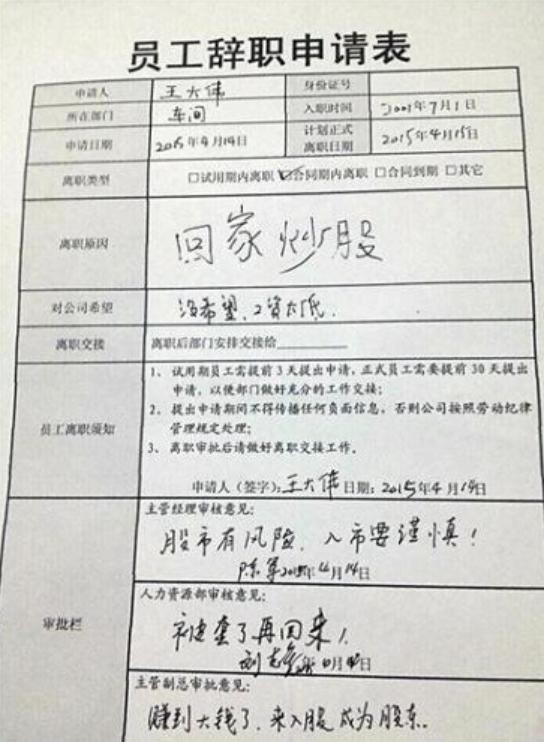 员工辞职申请表
申请人 王大伟 身份证号
所在部门 车间 入职时间 2001年7月1日
申请日期 2015年4月14日 计划正式离职日期 2015年4月15日
离职类型 □试用期内离职 ☑合同期内离职 □合同到期 □其它
离职原因 回家炒股
对公司希望 没希望,工资太低.
离职交接 离职后部门安排交接给________
员工离职须知
1、试用期员工需提前3天提出申请,正式员工需要提前30天提出
申请,以便部门做好充分的工作交接;
2、提出申请期间不得传播任何负面信息,否则公司按照劳动纪律
管理规定处理;
3、离职审批后请做好离职交接工作。
申请人(签字):王大伟 日期:2015年4月14日
审批栏
主管经理审核意见:
股市有风险,入市要谨慎!
陈军 2015年4月14日
人力资源部审核意见:
被套了再回来!
月 日
主管副总审批意见:
赚到大钱了,来入股成为股东.